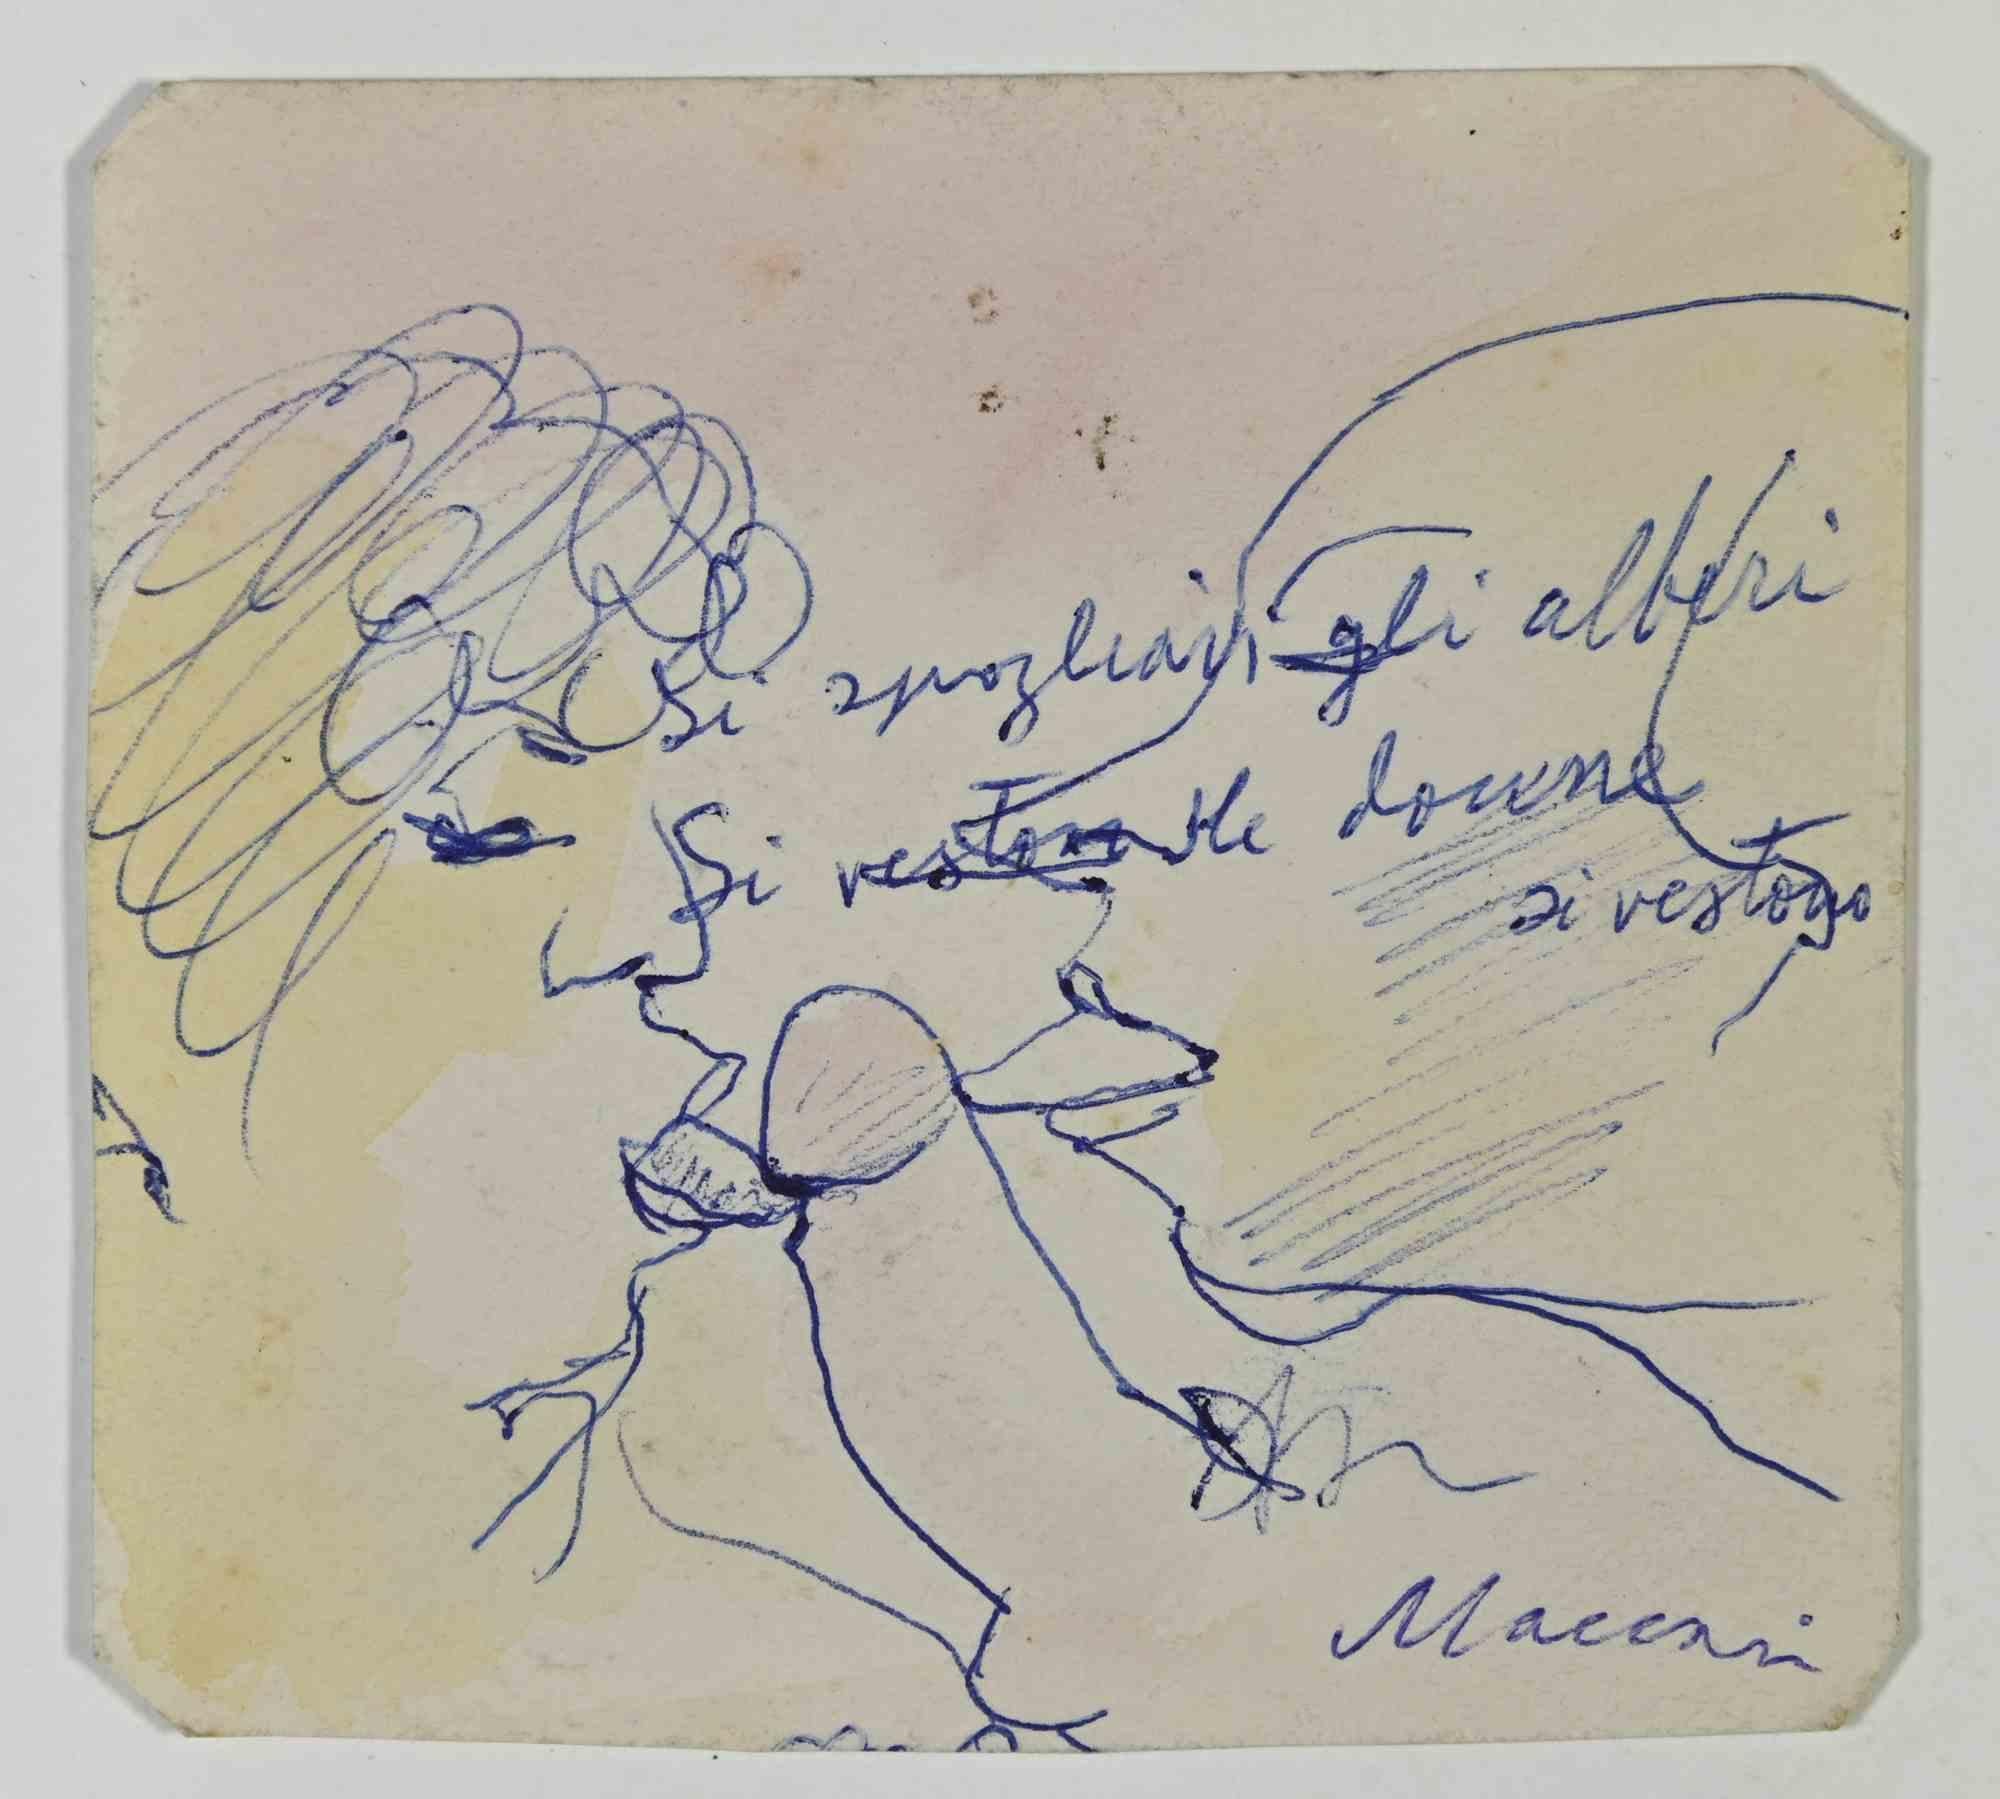 Si spogliavi gli alberi
Si vestono le donne
si vestono
Maccari